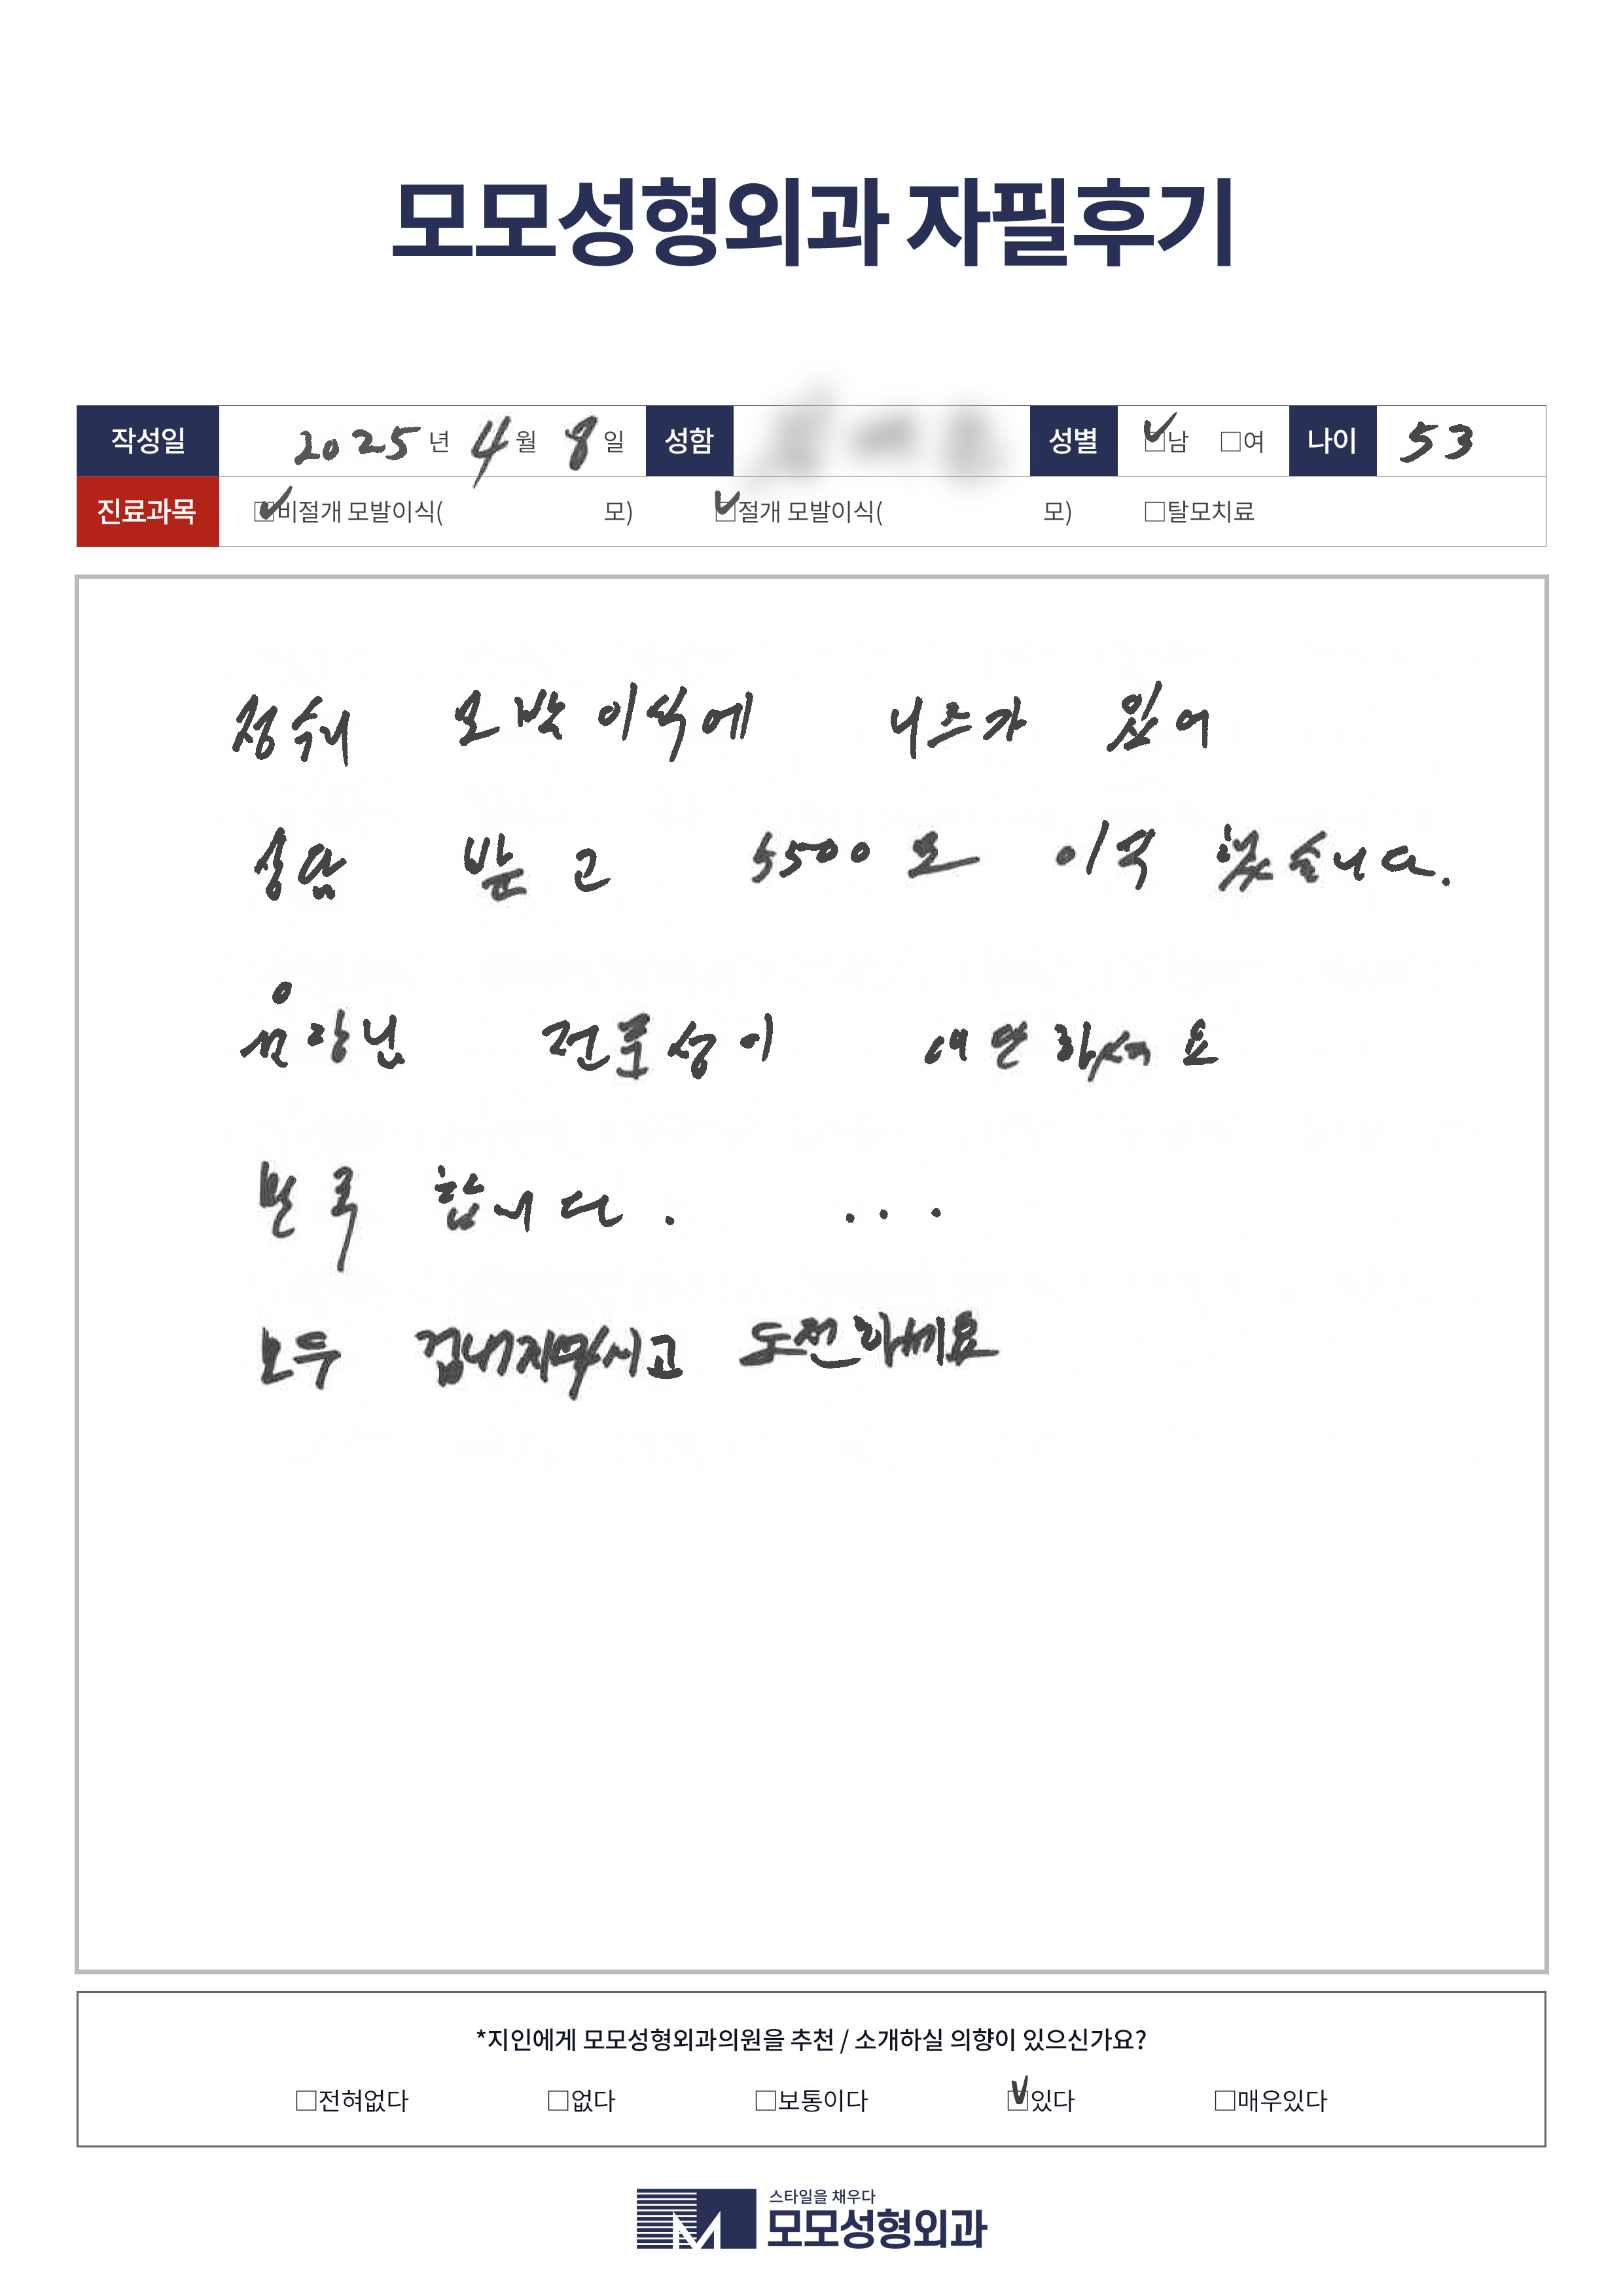 모모성형외과 자필후기
작성일 2025년 4월 8일 성함 성별 ☑남 □여 나이 53
진료과목 ☑비절개 모발이식( 모) ☑절개 모발이식( 모) □탈모치료
모발이식에 니즈가 있어
상담 받고 5500모 이식 했습니다.
원장님 전문성이 대단하셔요
만족 합니다. ...
모두 겁내지마시고 도전하세요
*지인에게 모모성형외과의원을 추천 / 소개하실 의향이 있으신가요?
□전혀없다 □없다 □보통이다 ☑있다 □매우있다
스타일을 채우다
모모성형외과